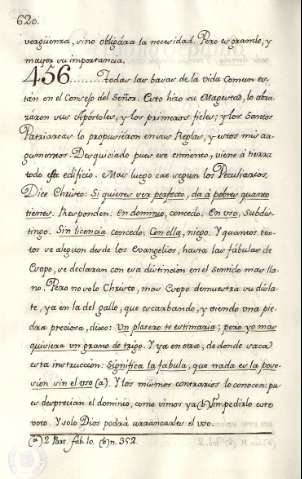 620.
verguenza, sino obligára la necesidad. Pero es grande, y
mayor su importancia.
456........Todas las basas de la vida comun es-
tán en el Consejo del Señor. Esto hizo su Magestad, lo abra-
zaron sus Apóstoles, y los primeros fieles; y los Santos
Patriarcas lo propusieron en sus Reglas, y estos mis ar-
gumentos. Desquiciado pues ese cimiento, viene á tierra
todo este edificio. Mas luego cae segun los Peculiarios.
Dice Christo: Si quieres ser perfecto, da á pobres quanto
tienes. Responden: En dominio, concedo. En uso, subdis-
tingo. Sin licencia concedo. Con ella, niego. Y quantos tex-
tos se alegan desde los Evangelios, hasta las fábulas de
Esopo, se declaran con esa distincion en el sentido mas lla-
no. Pero no solo Christo, mas Esopo demuestra su disla-
te, ya en la del gallo, que escarbando, y viendo una pie-
dra preciosa, dixo: Un platero te estimaria; pero yo mas
quisiera un grano de trigo. Y ya en otra, de donde saca
esta instruccion: Significa la fabula, que nada es la pose-
sion sin el uso (a). Y los mismos contrarios lo conocen; pu-
es desprecian el dominio, como vimos ya (b) sin pedirlo este
voto. Y solo Dios podrá arrancarles el uso.
(a) 2 Par. fab. 10. (b) n. 352.